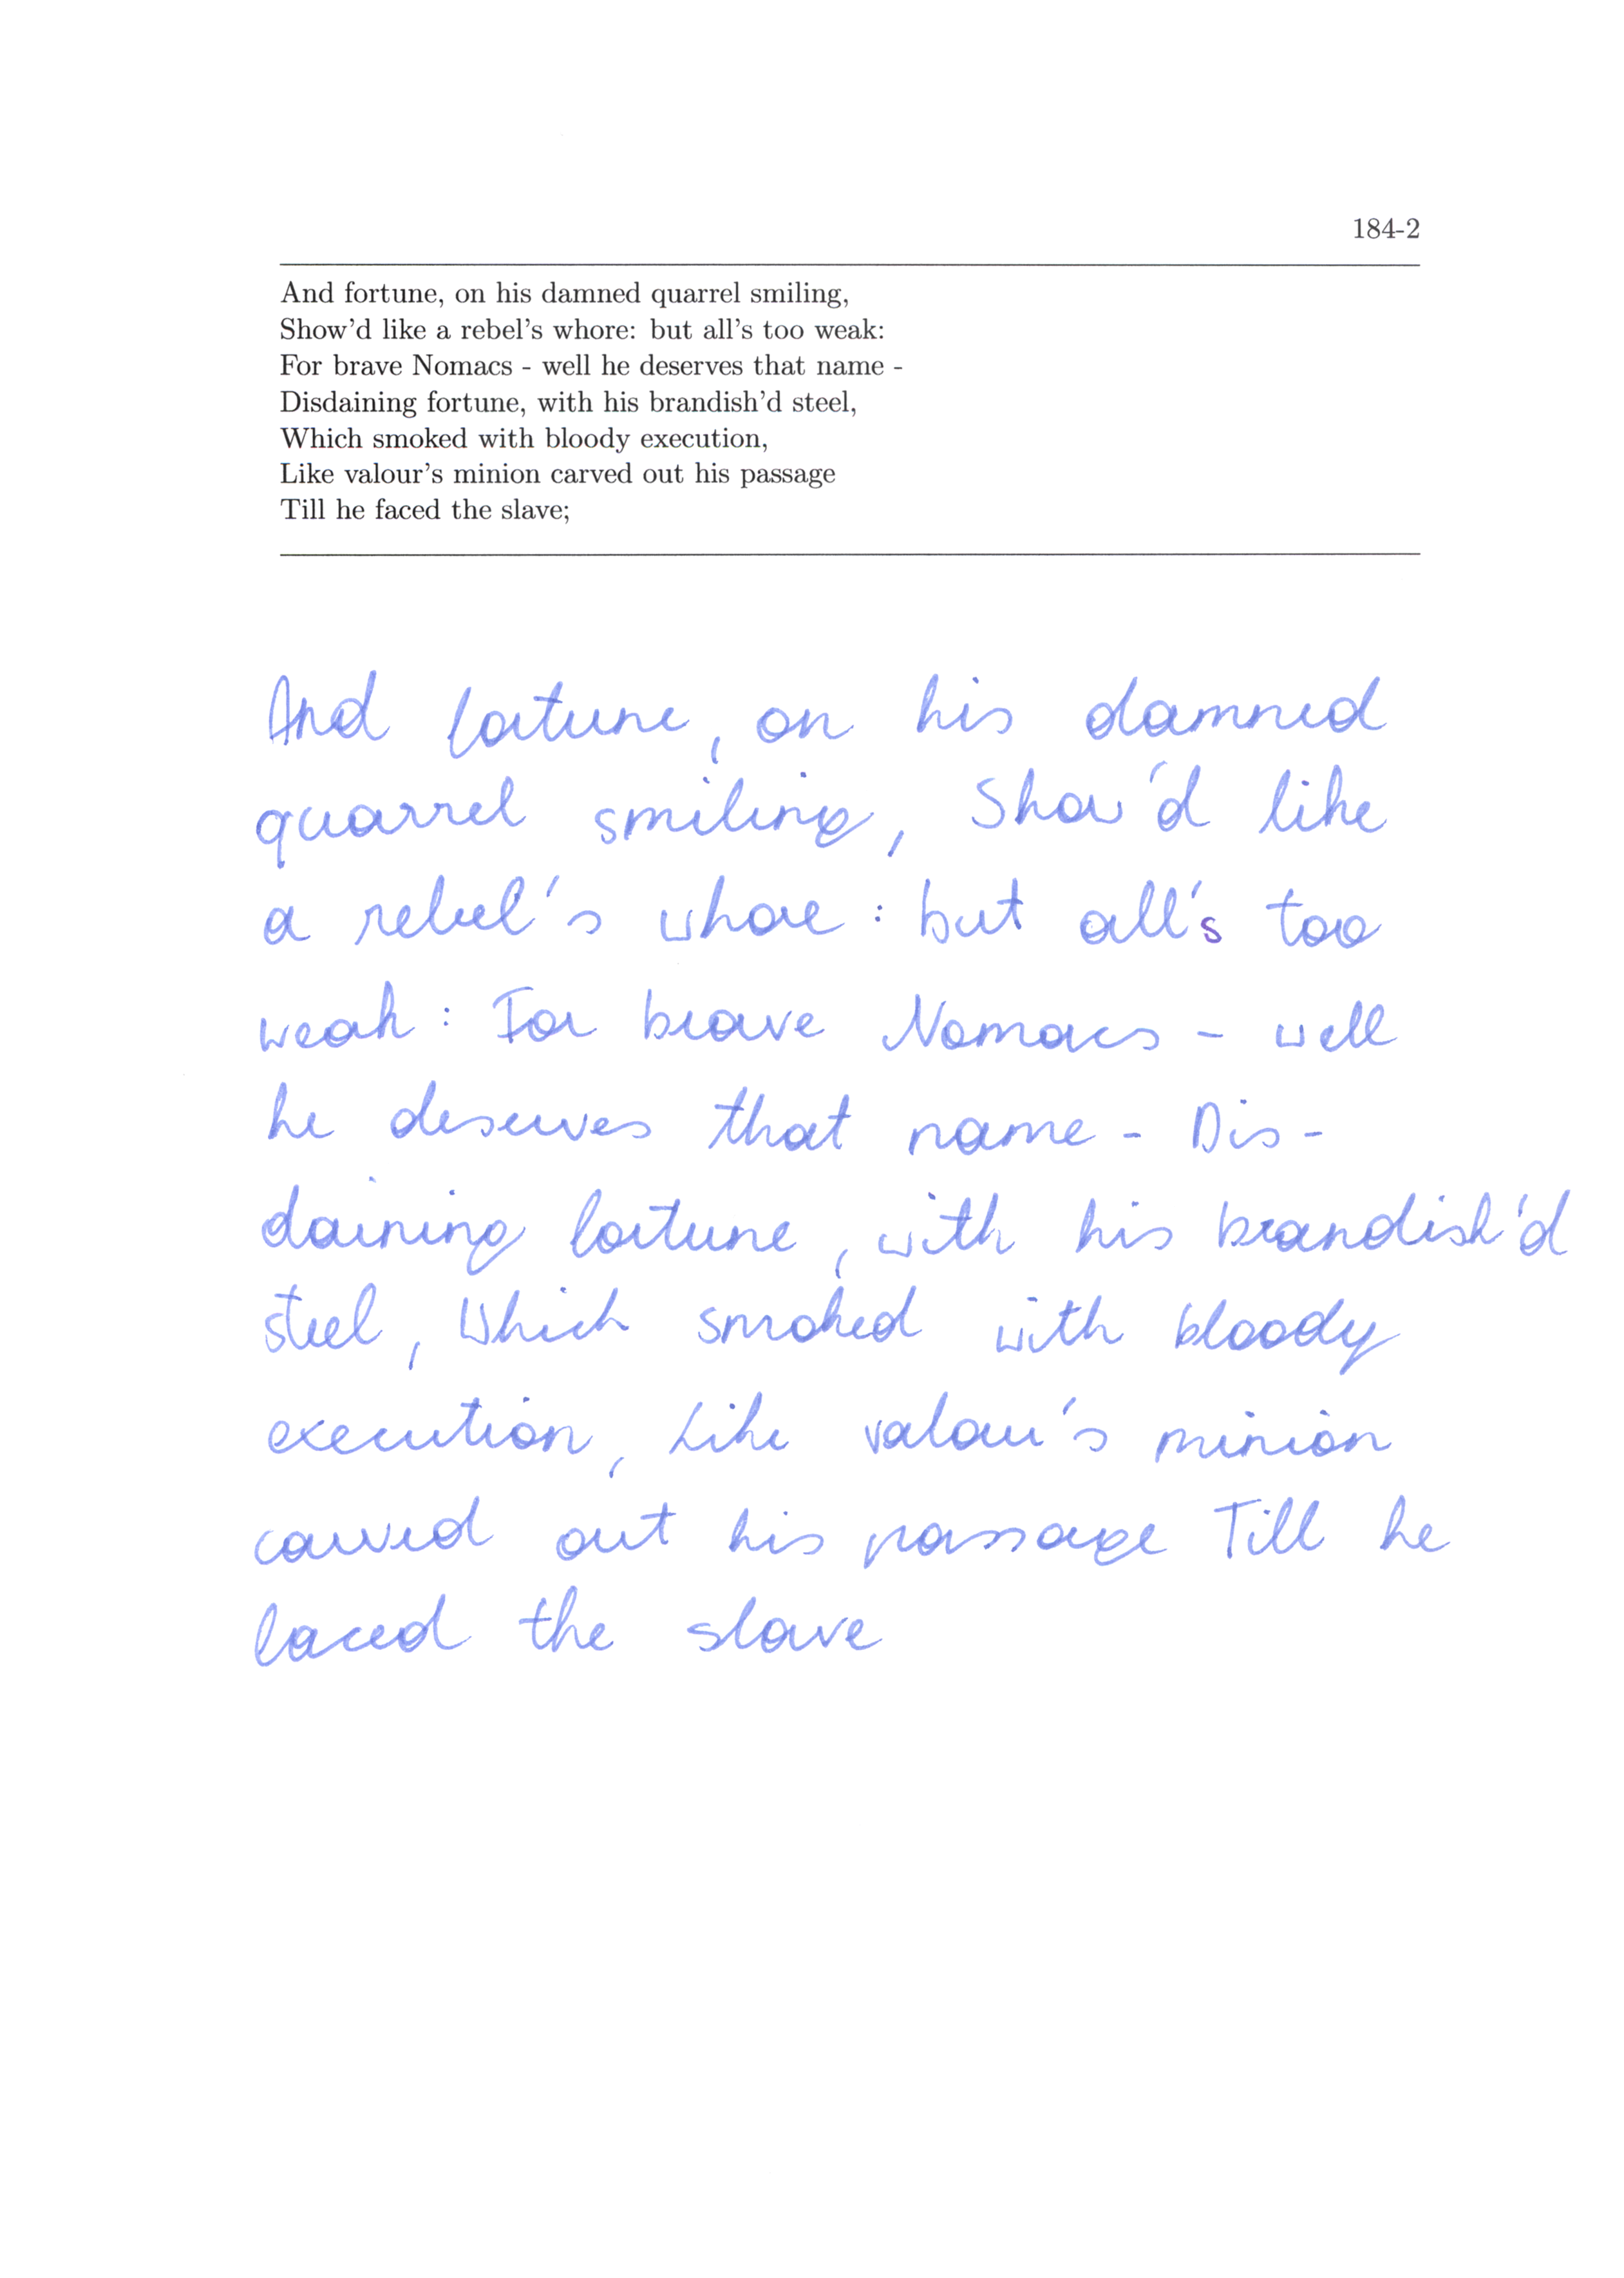 184-2
And fortune, on his damned quarrel smiling,
Show'd like a rebel's whore: but all's too weak:
For brave Nomacs - well he deserves that name -
Disdaining fortune, with his brandish'd steel,
Which smoked with bloody execution,
Like valour's minion carved out his passage
Till he faced the slave;
And fortune, on his damned
quarrel smiling, Show'd like
a rebel's whore: but all's too
weak: For brave Nomacs - well
he deserves that name - Dis-
daining fortune, with his brandish'd
steel, Which smoked with bloody
execution, Like valour's minion
carved out his passage Till he
faced the slave